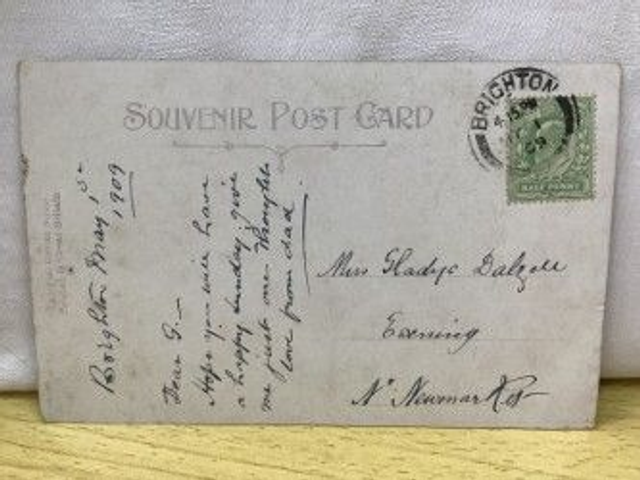 SOUVENIR POST CARD
BRIGHTON
4.15 PM
1
09
HALF PENNY
Brighton May 1st
1909
Dear G. —
Hope you will have
a happy Sunday, give
me just one thought
love from dad.
Miss Gladys Dalzell
Exning
Nr Newmarket